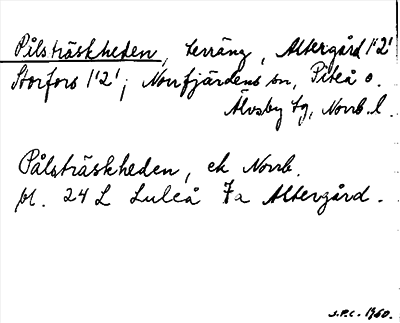 Pålsträskheden, terräng, Altergård 1'2'
Storfors 1'2'; Norrfjärdens sn, Piteå o.
Älvsby tg, Norrb. l.
Pålsträskheden, ek Norrb.
bl. 24 L Luleå 7a Altergård.
J.P.C. 1960.